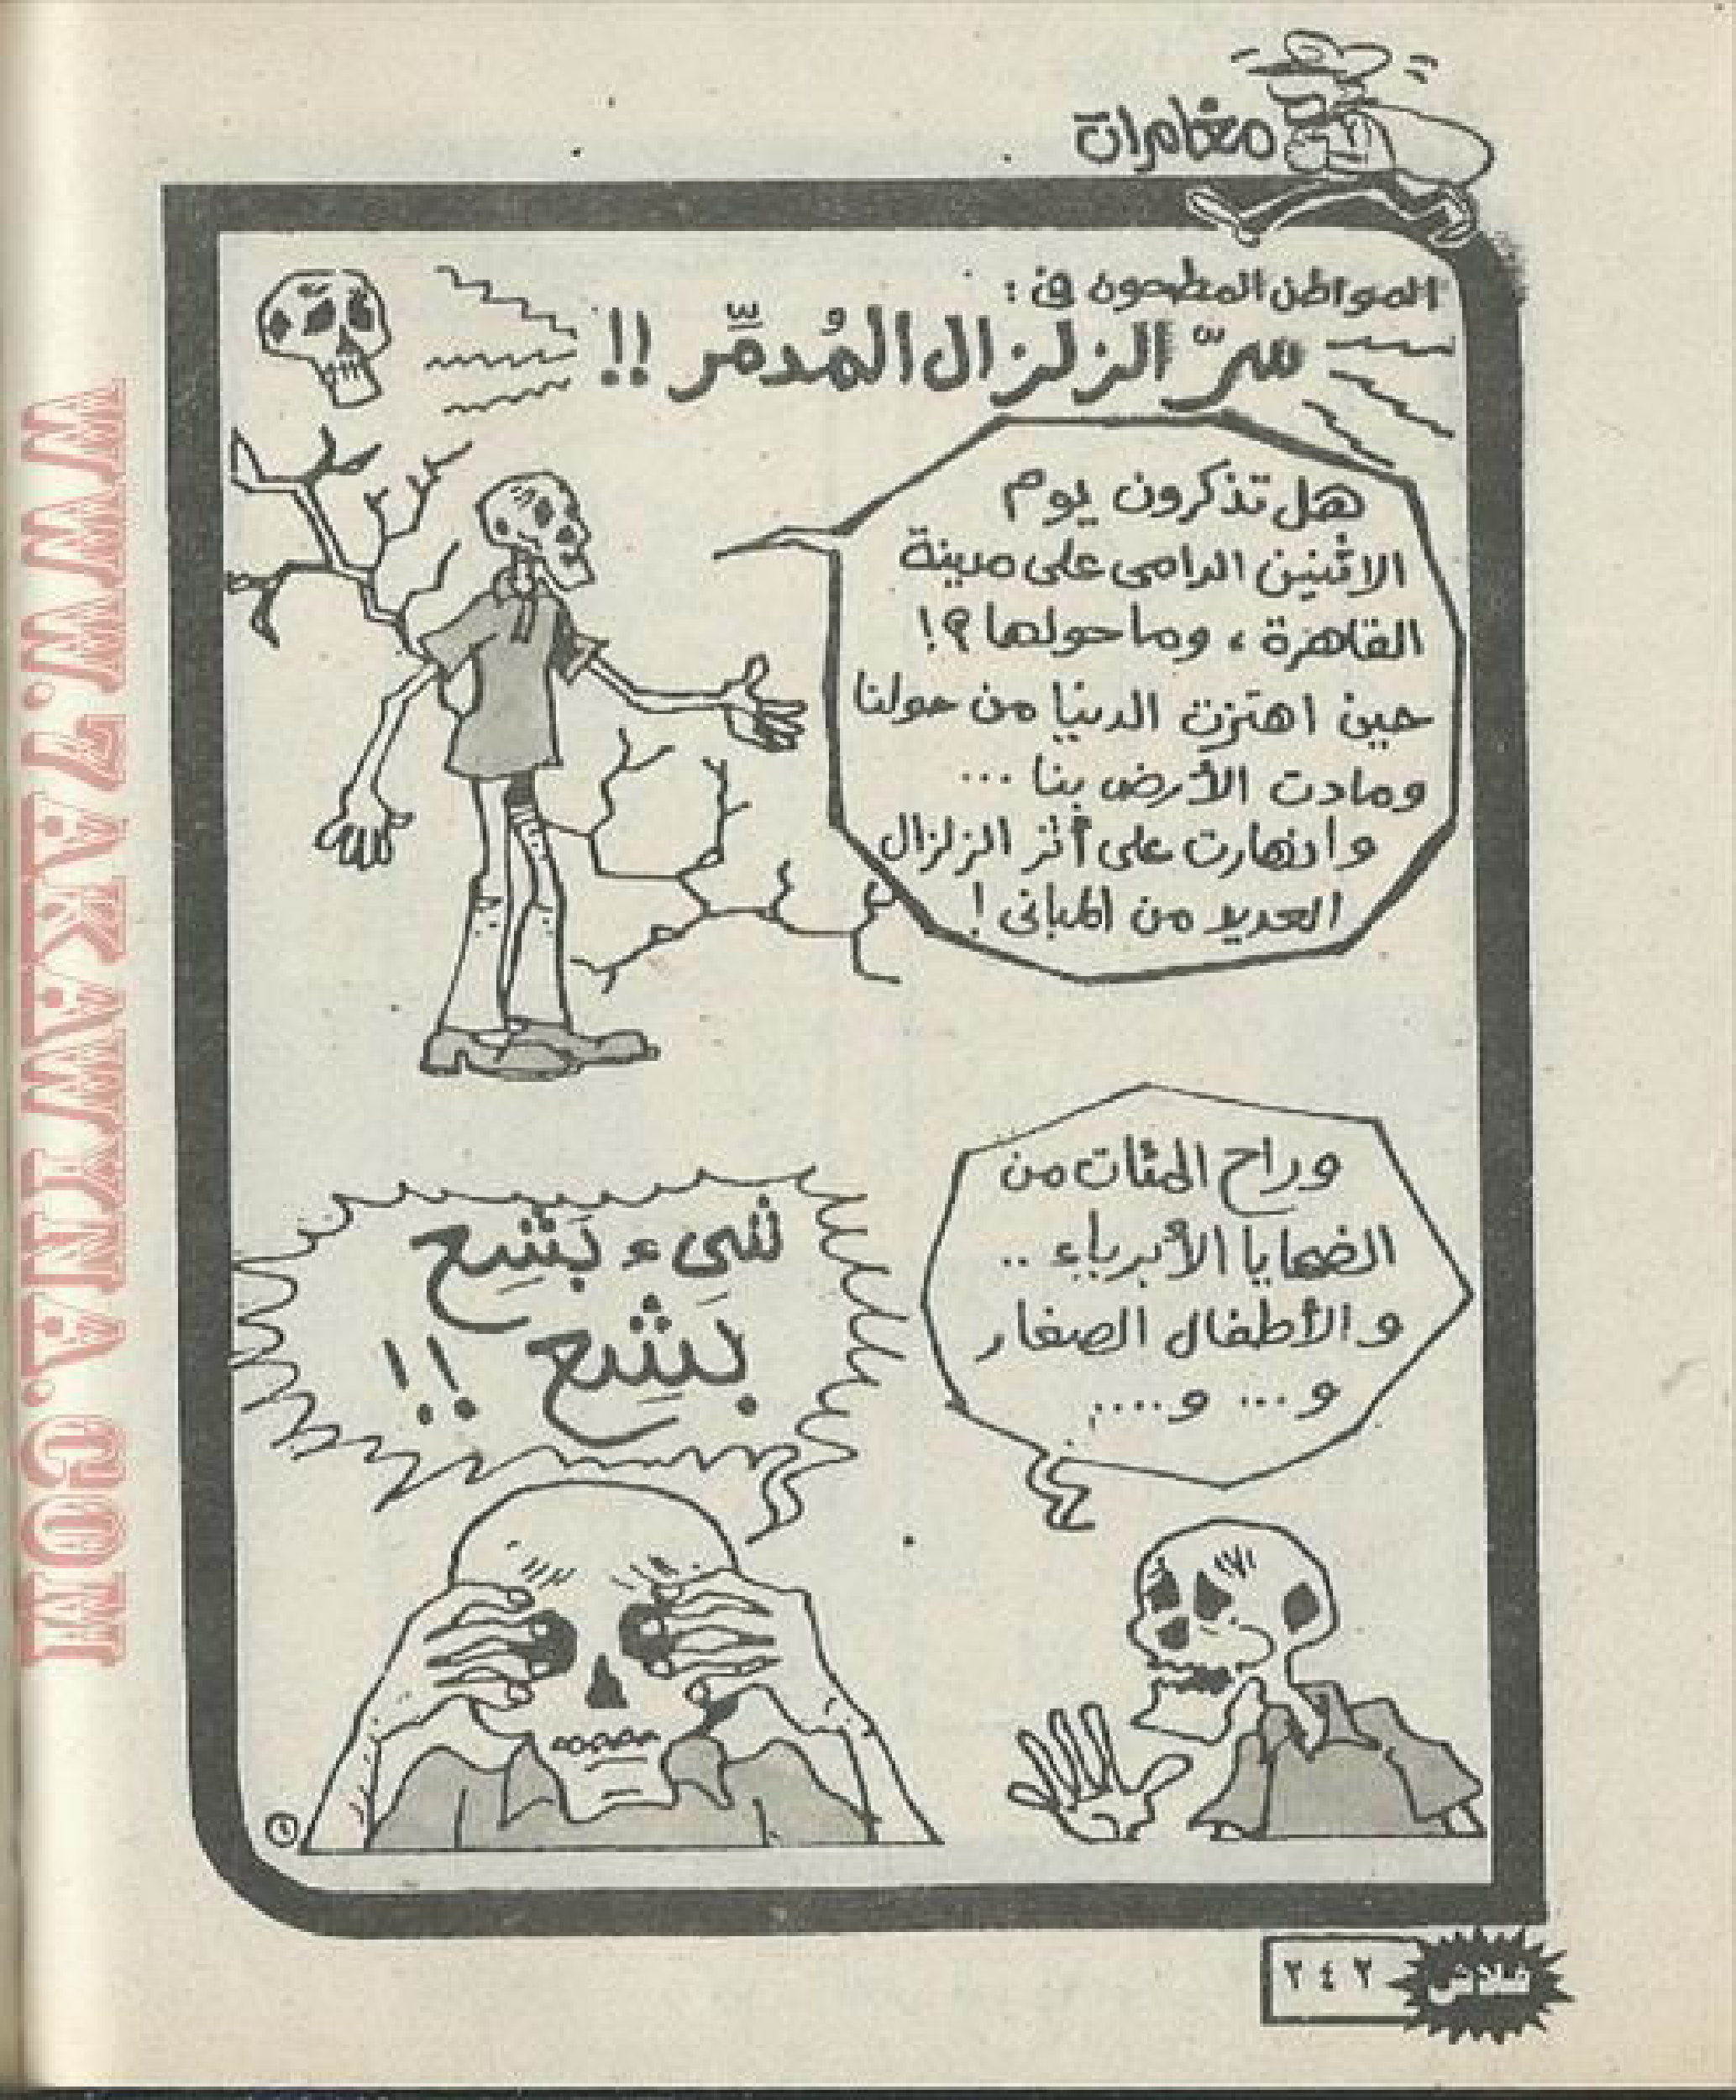 مغامرات
المواطن المطحون في :
سرّ الزلزال المُدمِّر !!
هل تذكرون يوم
الاثنين الدامى على مدينة
القاهرة ، وما حولها ؟!
حين اهتزت الدنيا من حولنا
ومادت الأرض بنا ...
وانهارت على أثر الزلزال
العديد من المبانى !
وراح المئات من
الضحايا الأبرياء ..
والأطفال الصغار
و ... و ....
شىء بَشِع
بَشِع !!
١
فلاش ٢٤٢
WWW.7AKAWINA.COM